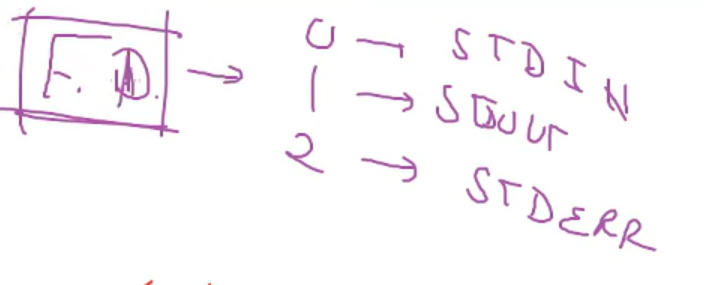 F.D. → 0 → STDIN
1 → STDOUT
2 → STDERR